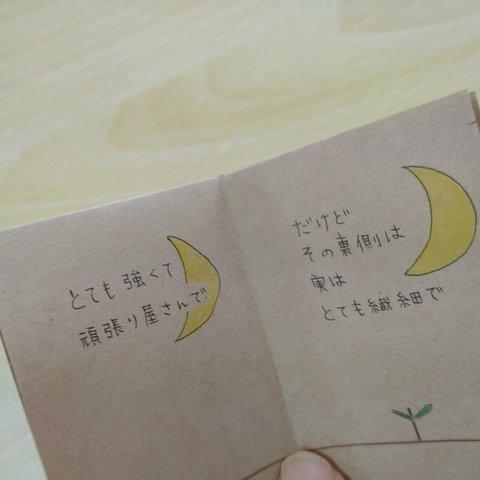 とても強くて
頑張り屋さんで
だけど
その裏側は
実は
とても繊細で